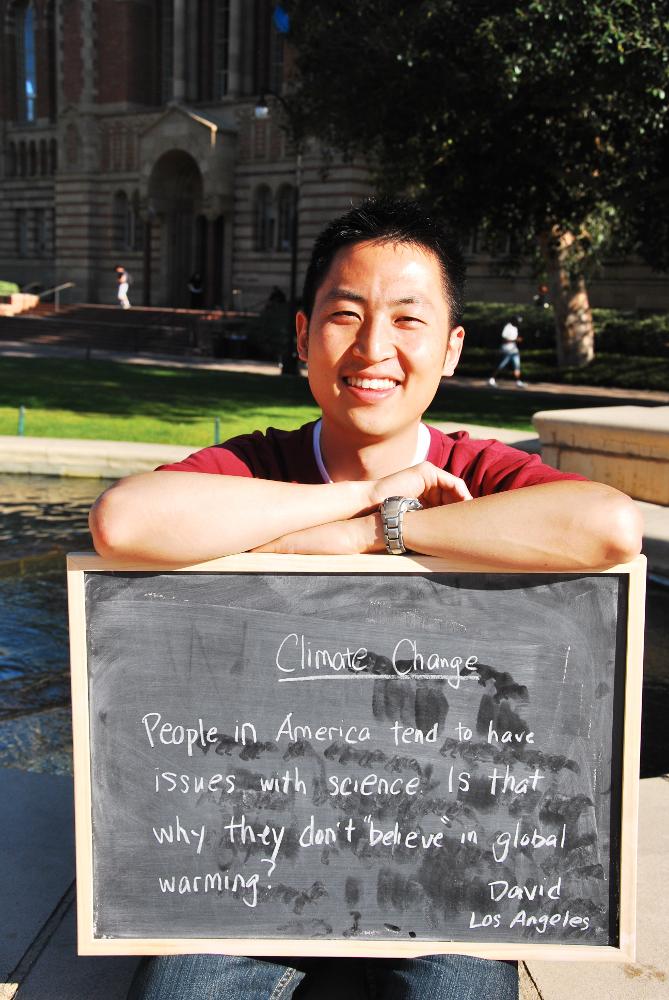 Climate Change
People in America tend to have
issues with science. Is that
why they don't "believe" in global
warming?
David
Los Angeles